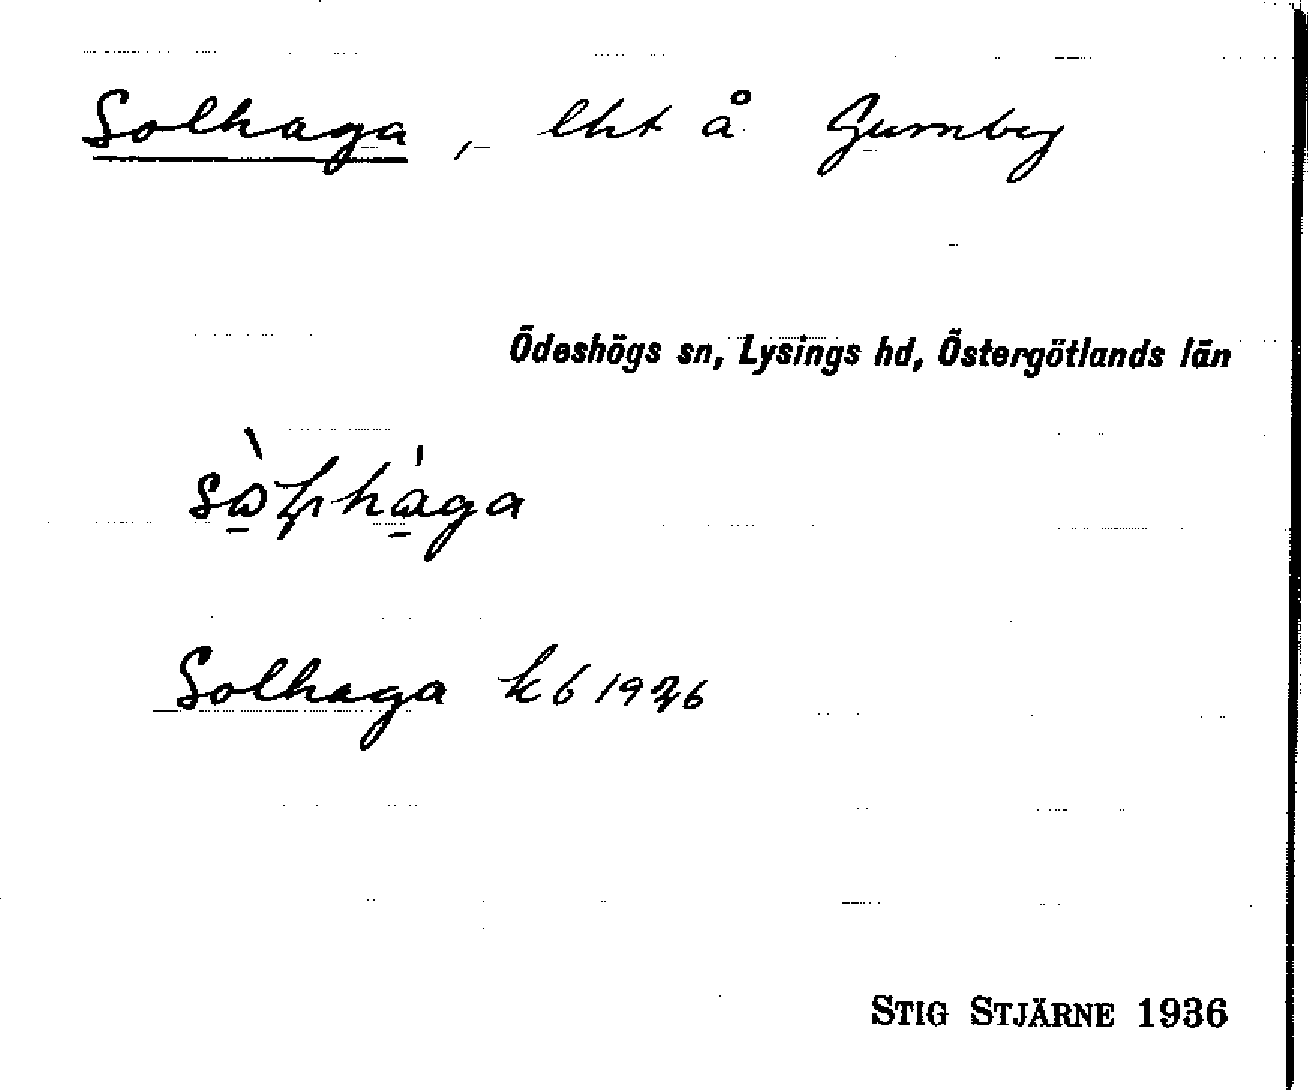 Solhaga, lht å Gumby
Ödeshögs sn, Lysings hd, Östergötlands län
Solhaga kb 1926
STIG STJÄRNE 1936